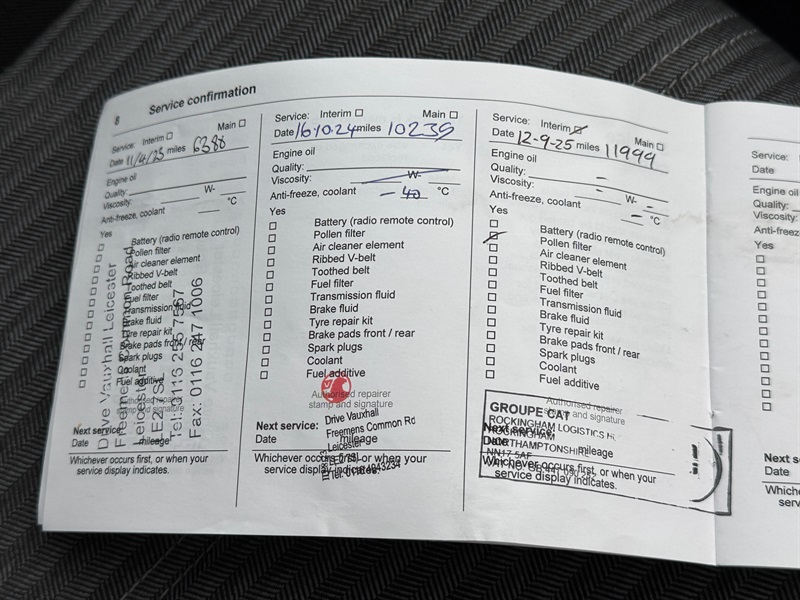 8 Service confirmation
Service: Interim Main
Date 11/4/23 miles 6388
Engine oil
Quality:
Viscosity: W-
Anti-freeze, coolant °C
Yes
Battery (radio remote control)
Pollen filter
Air cleaner element
Ribbed V-belt
Toothed belt
Fuel filter
Transmission fluid
Brake fluid
Tyre repair kit
Brake pads front / rear
Spark plugs
Coolant
Fuel additive
Authorised repairer
stamp and signature
Drive Vauxhall Leicester
Leicester
Fax: 0116 247 1006
Next service:
Date mileage
Whichever occurs first, or when your
service display indicates.
Service: Interim Main
Date 16.10.24 miles 10239
Engine oil
Quality:
Viscosity: W-
Anti-freeze, coolant -40 °C
Yes
Battery (radio remote control)
Pollen filter
Air cleaner element
Ribbed V-belt
Toothed belt
Fuel filter
Transmission fluid
Brake fluid
Tyre repair kit
Brake pads front / rear
Spark plugs
Coolant
Fuel additive
Authorised repairer
stamp and signature
Drive Vauxhall
Freemens Common Rd
Leicester
Next service:
Date mileage
Whichever occurs first, or when your
service display indicates.
Service: Interim Main
Date 12-9-25 miles 11999
Engine oil
Quality: -
Viscosity: - W- -
Anti-freeze, coolant - °C
Yes
Battery (radio remote control)
Pollen filter
Air cleaner element
Ribbed V-belt
Toothed belt
Fuel filter
Transmission fluid
Brake fluid
Tyre repair kit
Brake pads front / rear
Spark plugs
Coolant
Fuel additive
Authorised repairer
stamp and signature
GROUPE CAT
ROCKINGHAM LOGISTICS H
ROCKINGHAM
NORTHAMPTONSHIRE
NN17 5AF
Next service:
Date mileage
Whichever occurs first, or when your
service display indicates.
Service:
Date
Engine oil
Quality:
Viscosity:
Anti-freeze
Yes
Next s
Date
Which
serv